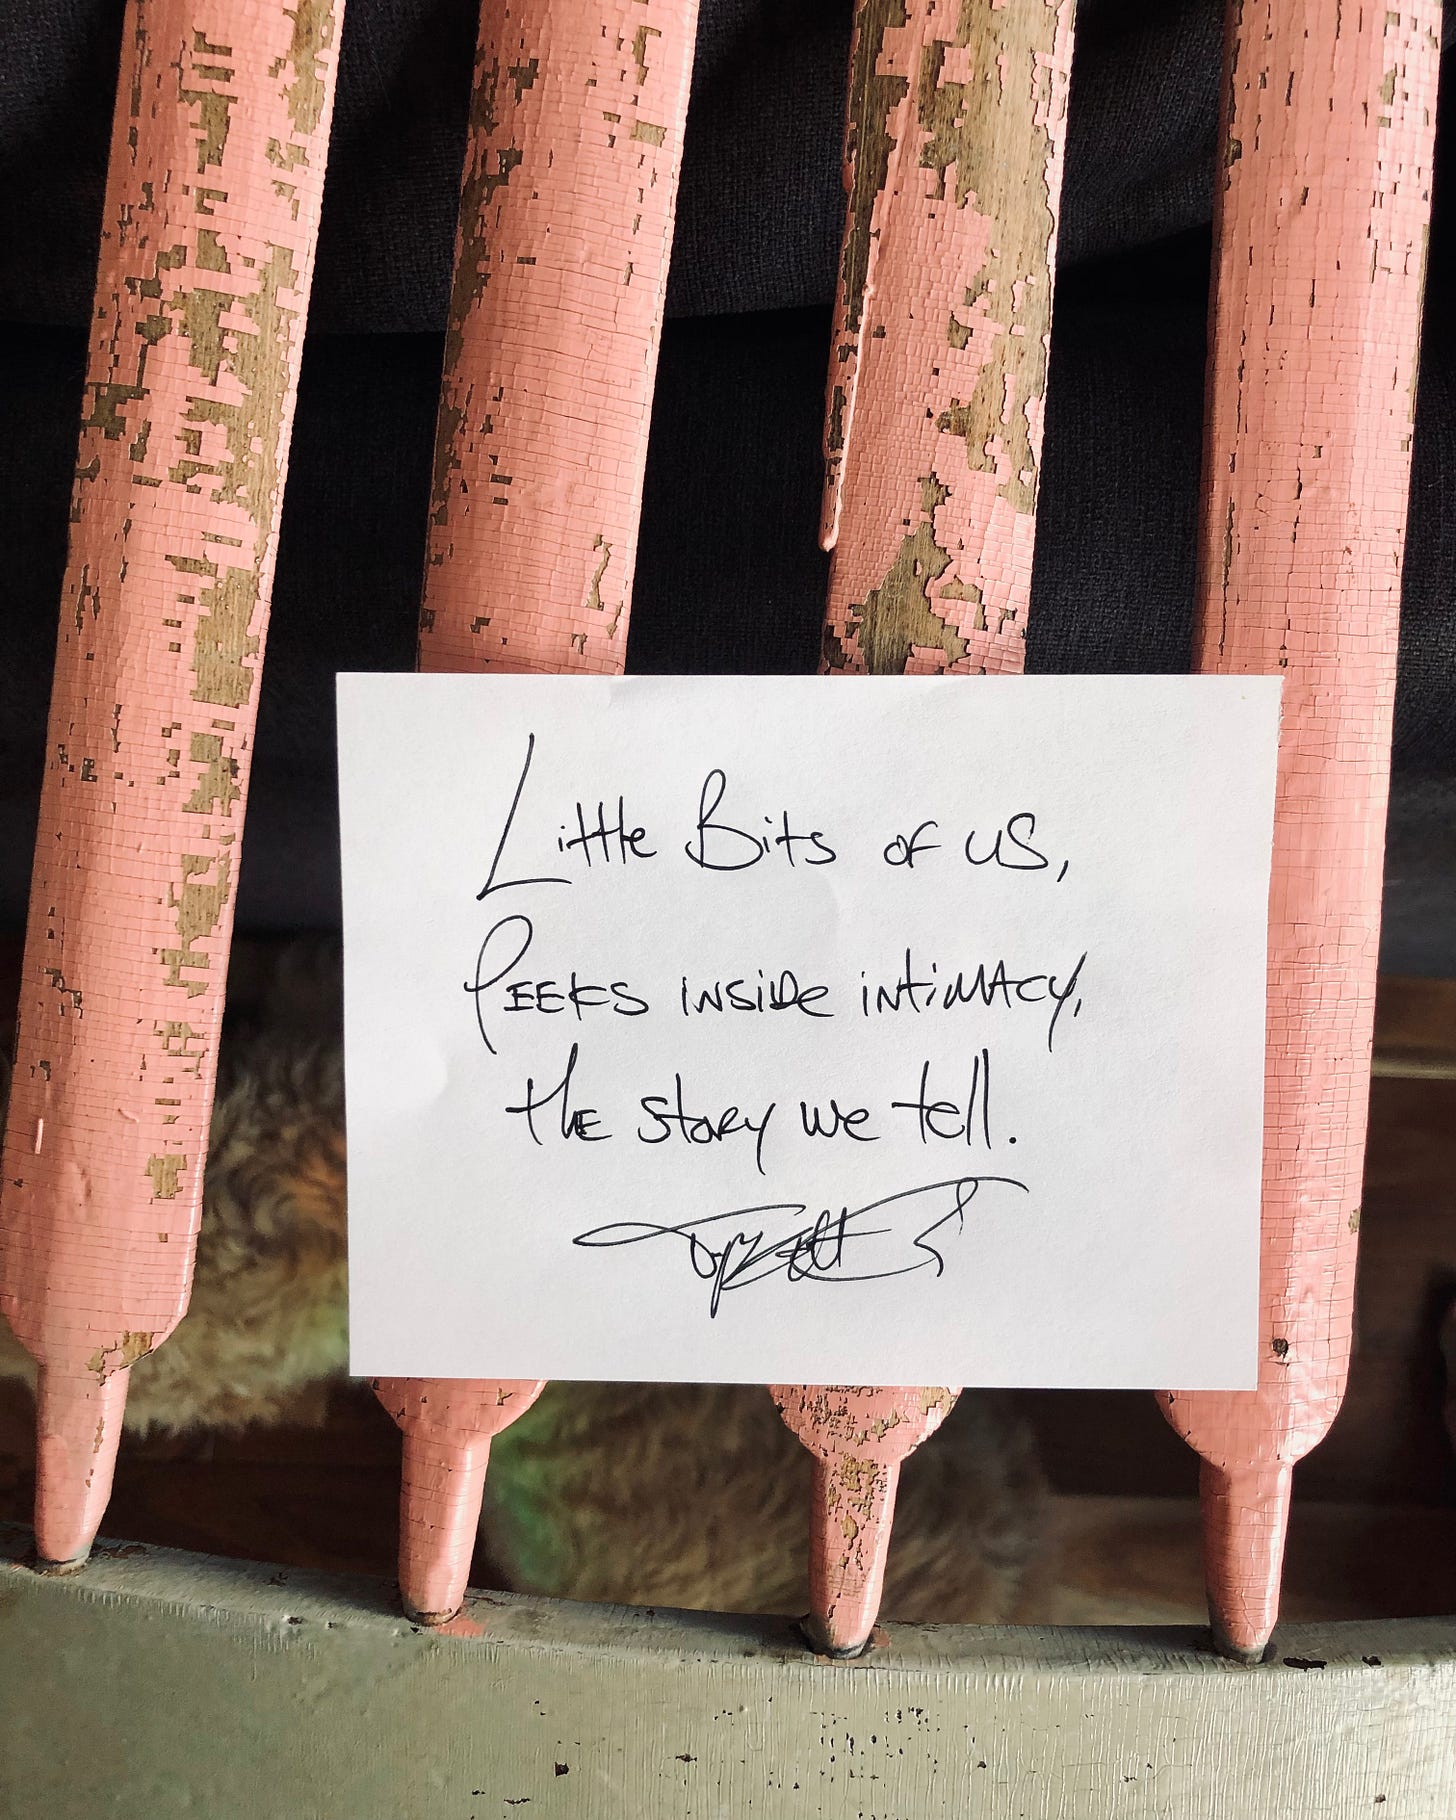 Little Bits of us,
Peeks inside intimacy,
the story we tell.